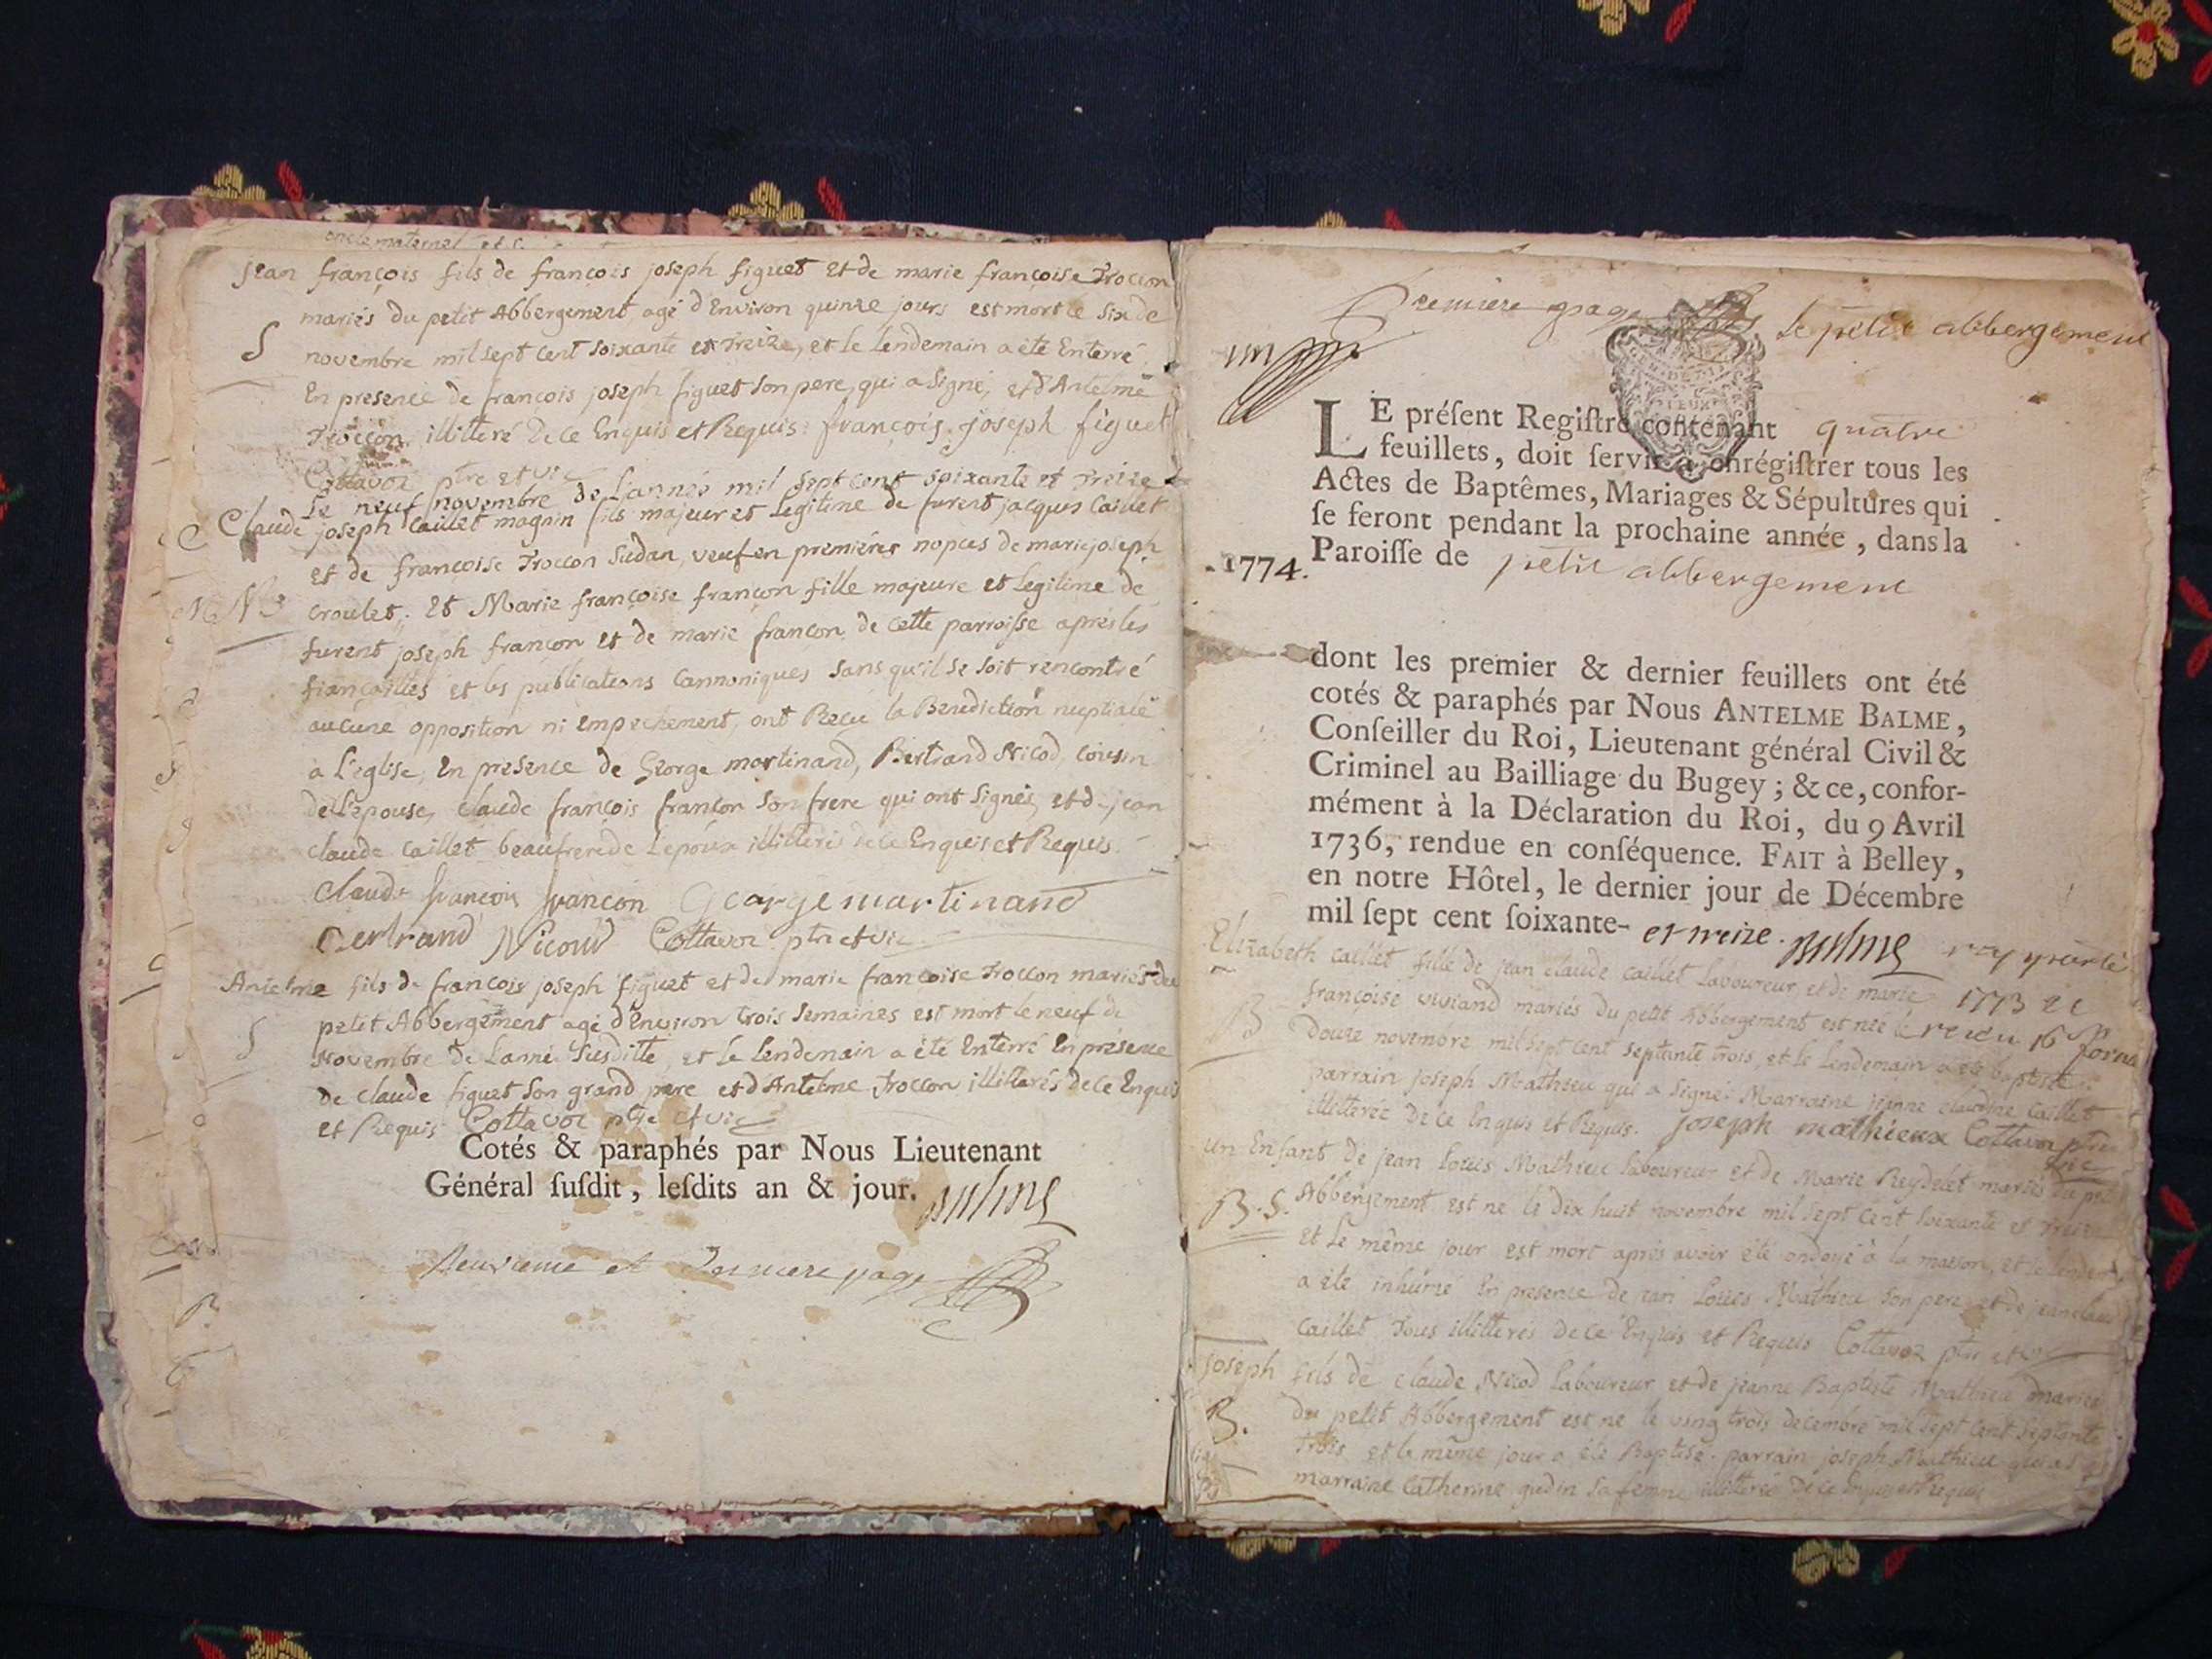 oncle maternel et
jean françois fils de françois joseph figuet et de marie françoise Troccon
mariés du petit Abbergement, agé d'Environ quinze jours est mort le six de
S novembre mil sept cent soixante et treize, et le lendemain a été Enterré
En presence de françois joseph figuet son pere, qui a signé, et d'Antelme
Troccon illitteré de ce Enquis et Requis. françois joseph figuet
Cottavoz ptre et vic
Le neuf novembre de l'année mil sept cent soixante et treize
Claude joseph Caillet magnin fils majeur et legitime de furent jacques Caillet
et de françoise Troccon Sudan, veuf en premieres nopces de marie joseph
croulet; et Marie françoise françon fille majeure et legitime de
furent joseph françon et de marie françon de cette parroisse après les
fiançailles et les publications cannoniques sans qu'il se soit rencontré
aucune opposition ni empechement, ont Reçu la Benediction nuptiale
a L'eglise, En presence de George martinand, Bertrand Nicod, cousin
de L'epouse, claude françois françon son frere qui ont signés, et de jean
claude Caillet beaufrere de L'epoux illitteré de ce Enquis et Requis.
Claude françois françon George martinand
Bertrand Nicoud Cottavoz ptre et vic
Antelme fils de françois joseph figuet et de marie françoise Troccon mariés du
petit Abbergement agé d'Environ trois semaines est mort le neuf de
S novembre de L'année susditte, et le lendemain a été Enterré En présence
de claude figuet son grand pere et d'Antelme Troccon illitterés de ce Enquis
et Requis Cottavoz ptre et vic
Cotés & paraphés par Nous Lieutenant
Général ſuſdit, leſdits an & jour. Balme
Neuvieme et Derniere page
Premiere page
Le petit abbergement
un
LE préſent Regiſtre contenant quatre
feuillets, doit ſervir à enrégiſtrer tous les
Actes de Baptêmes, Mariages & Sépultures qui
ſe feront pendant la prochaine année, dans la
1774. Paroiſſe de petit abbergement
dont les premier & dernier feuillets ont été
cotés & paraphés par Nous ANTELME BALME,
Conſeiller du Roi, Lieutenant général Civil &
Criminel au Bailliage du Bugey; & ce, confor-
mément à la Déclaration du Roi, du 9 Avril
1736, rendue en conſéquence. FAIT à Belley,
en notre Hôtel, le dernier jour de Décembre
mil ſept cent ſoixante- et treize. Balme
Elizabeth caillet fille de jean claude caillet Laboureur et de marie 1773
françoise viviand mariés du petit Abbergement est née le
B Douze novembre mil sept cent septante trois, et le Lendemain a été baptisée
parrain joseph Mathieu qui a signé. Marraine jeanne claudine Caillet
illitterée de ce Enquis et Requis. joseph mathieux Cottavoz ptre
vic
un Enfant de jean Louis Mathieu laboureur et de Marie Reydelet mariés du petit
B.S. Abbergement est né le dix huit novembre mil sept cent soixante et treize
et Le même jour est mort après avoir été ondoyé à la maison, et
a été inhumé En presence de jean Louis Mathieu son pere, et de jean claude
Caillet Tous illitterés de ce Enquis et Requis Cottavoz ptre et vic
joseph fils de claude Nicod Laboureur et de jeanne Baptiste Mathieu mariés
B. du petit Abbergement est né le vingt trois decembre mil sept cent septante
trois et le même jour a été Baptisé. parrain joseph Mathieu qui
marraine Catherine gudin sa femme illitterée de ce Enquis et Requise